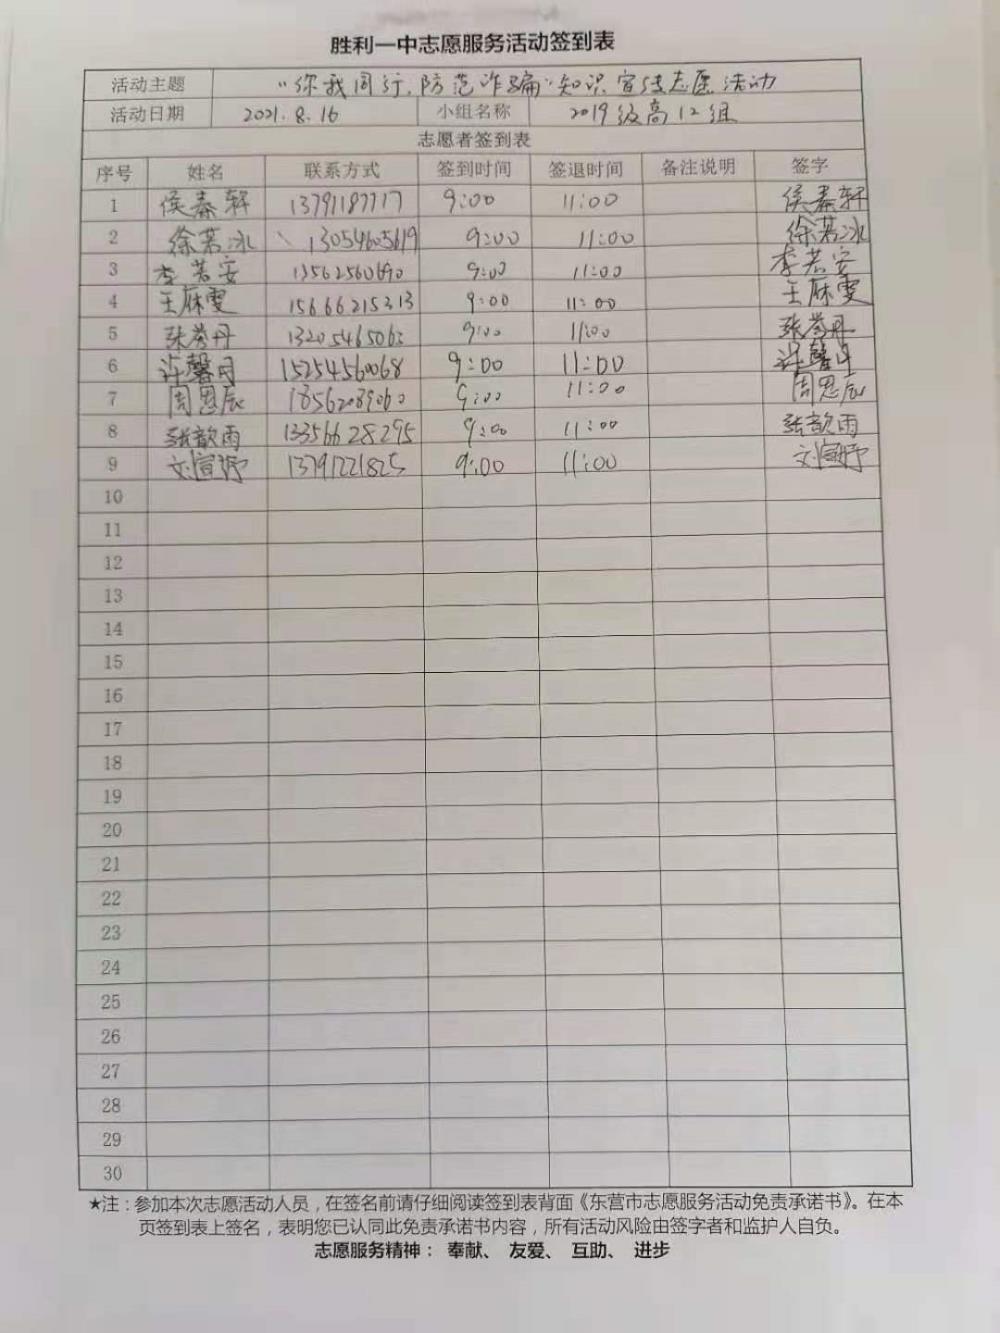 胜利一中志愿服务活动签到表
活动主题 “你我同行,防范诈骗”知识宣传志愿活动
活动日期 2021.8.16 小组名称 2019级高12组
志愿者签到表
序号 姓名 联系方式 签到时间 签退时间 备注说明 签字
1 侯秦轩 13791187717 9:00 11:00 侯秦轩
2 徐若冰 13054605619 9:00 11:00 徐若冰
3 李若安 13562560690 9:00 11:00 李若安
4 王麻雯 15666215313 9:00 11:00 王麻雯
5 张 丹 13205465063 9:00 11:00 张 丹
6 许馨月 15254560068 9:00 11:00 许馨月
7 周恩辰 18562089060 9:00 11:00 周恩辰
8 张歆雨 13356628295 9:00 11:00 张歆雨
9 刘宣妤 13791221825 9:00 11:00 刘宣妤
10
11
12
13
14
15
16
17
18
19
20
21
22
23
24
25
26
27
28
29
30
★注：参加本次志愿活动人员，在签名前请仔细阅读签到表背面《东营市志愿服务活动免责承诺书》。在本
页签到表上签名，表明您已认同此免责承诺书内容，所有活动风险由签字者和监护人自负。
志愿服务精神： 奉献、 友爱、 互助、 进步